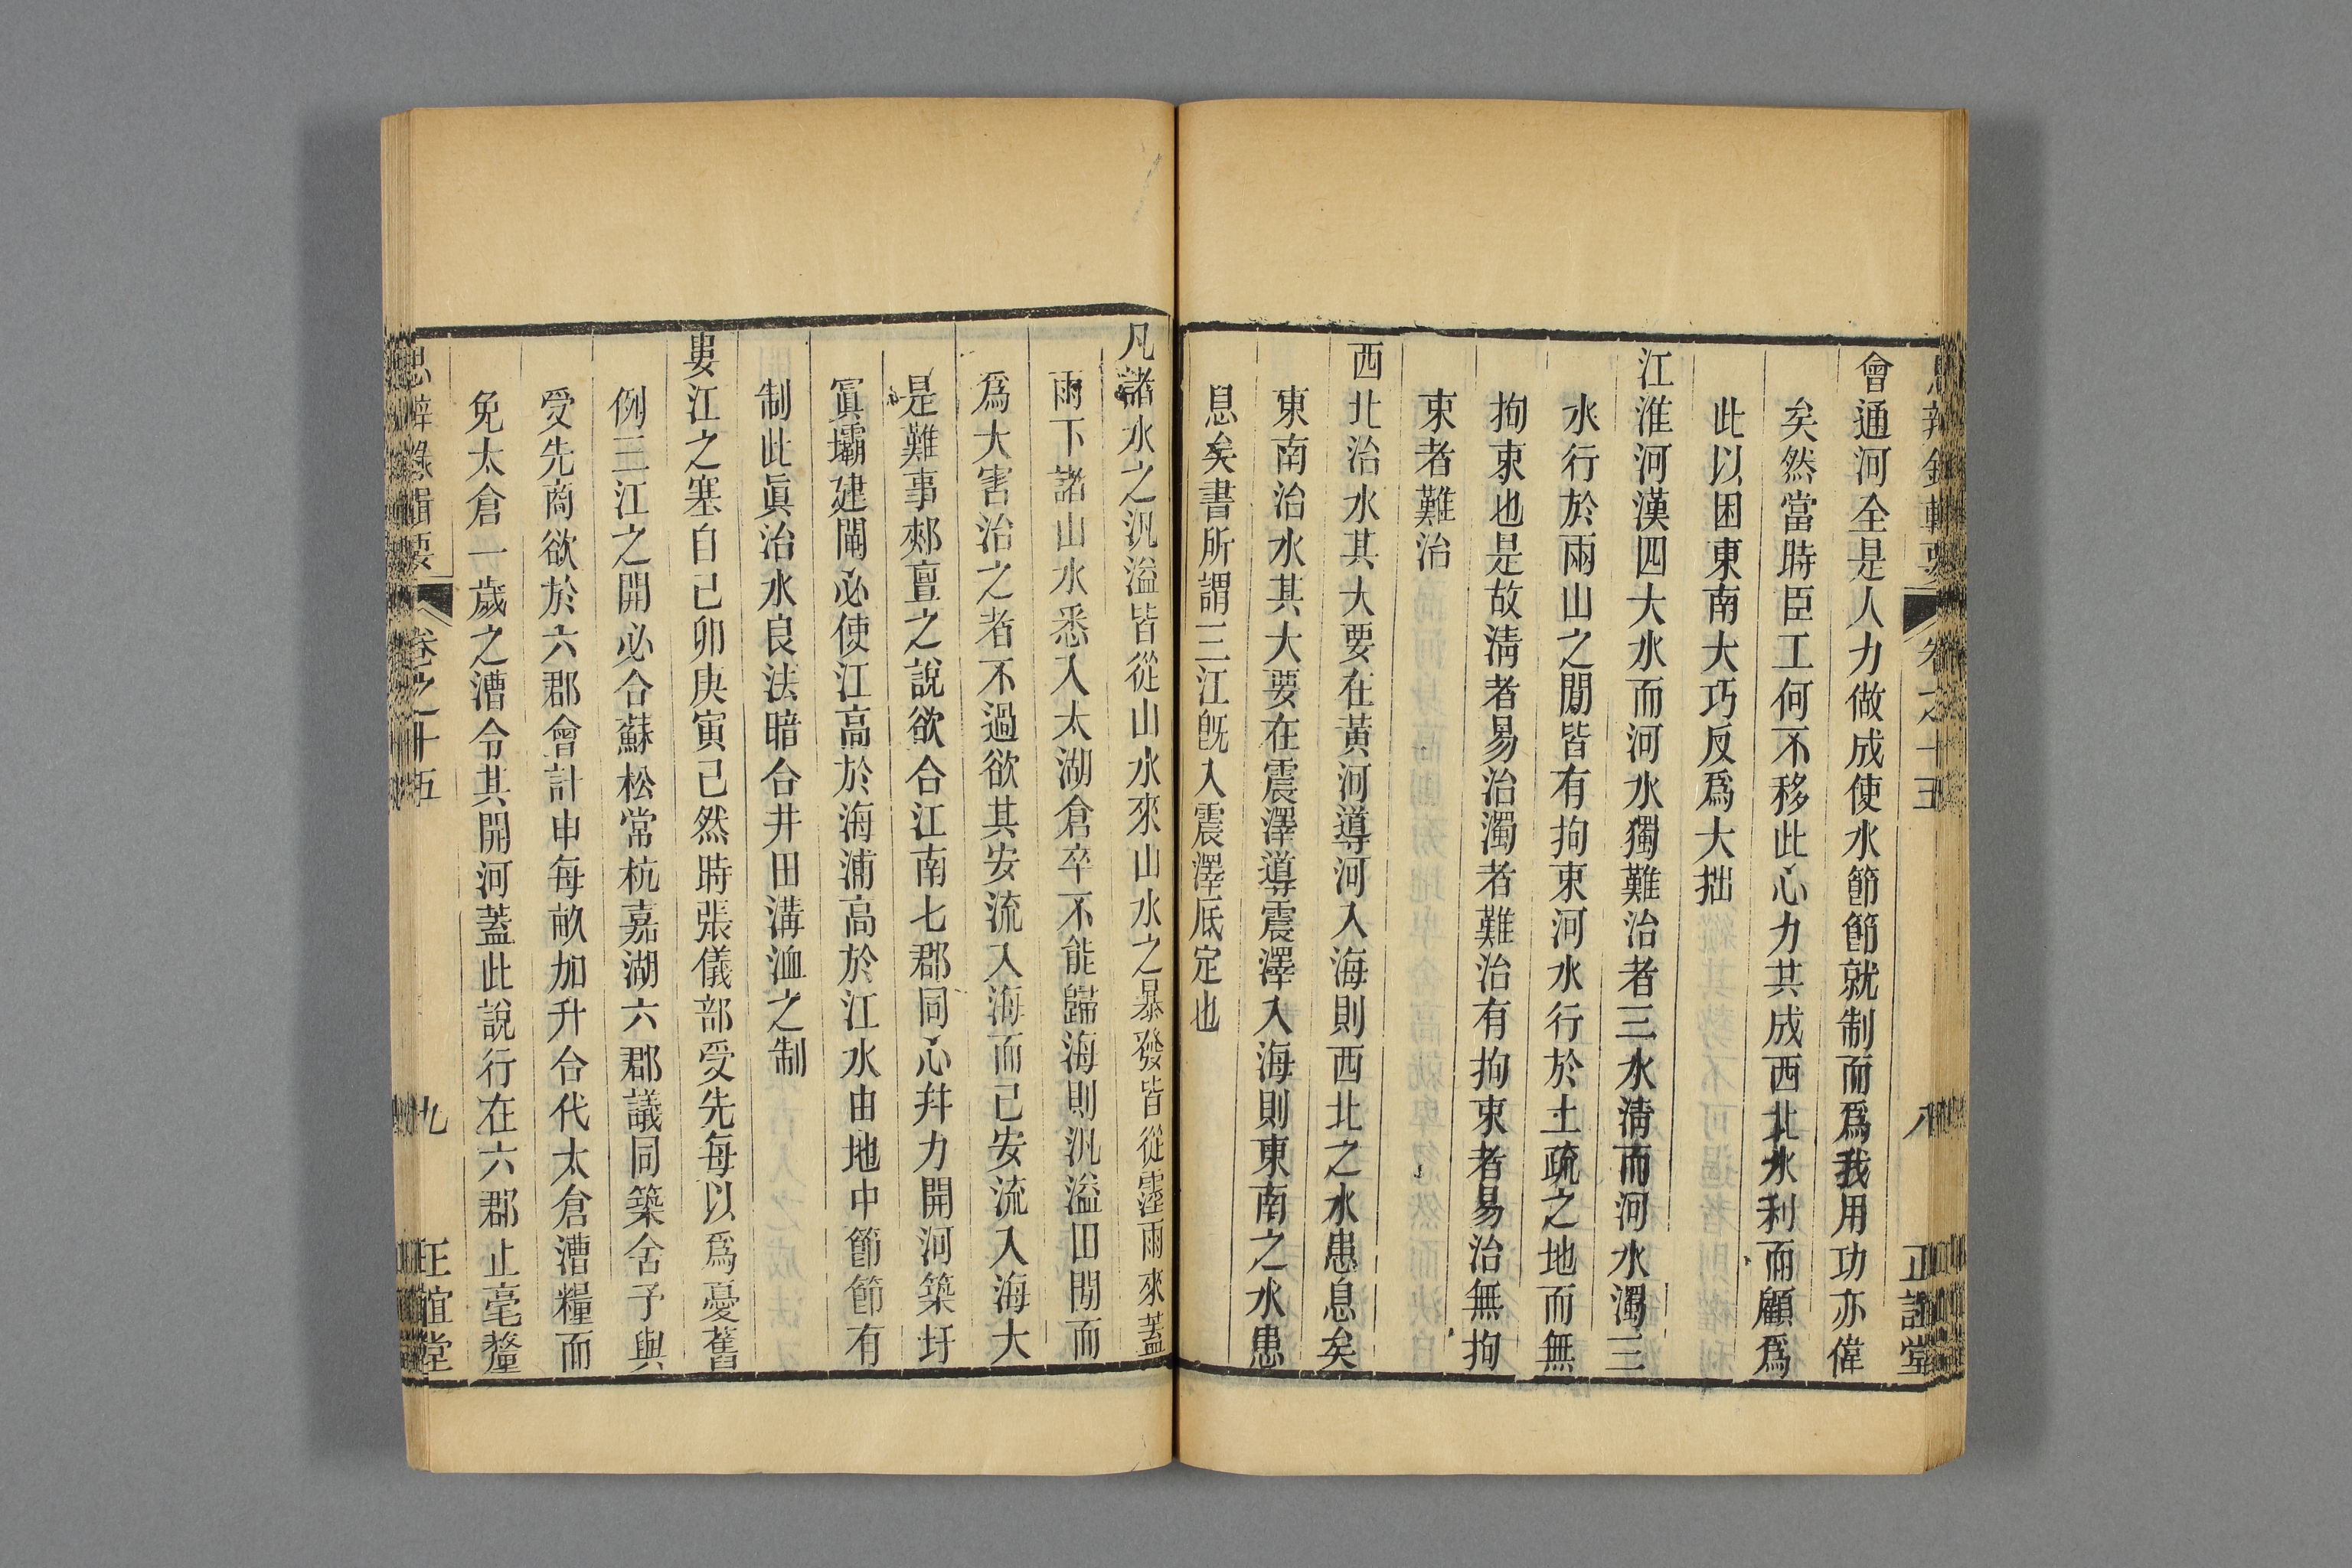 會通河全是人力做成使水節節就制而爲我用功亦偉
矣然當時臣工何不移此心力共成西北水利而顧爲
此以困東南大巧反爲大拙
江淮河漢四大水而河水獨難治者三水淸而河水濁三
水行於兩山之閒皆有拘束河水行於土疏之地而無
拘束也是故淸者易治濁者難治有拘束者易治無拘
束者難治
西北治水其大要在黃河導河入海則西北之水患息矣
東南治水其大要在震澤導震澤入海則東南之水患
息矣書所謂三江旣入震澤底定也
凡諸水之汎溢皆從山水來山水之暴發皆從霪雨來蓋
雨下諸山水悉入太湖倉卒不能歸海則汎溢田閒而
爲大害治之者不過欲其安流入海而已安流入海大
是難事郟亶之說欲合江南七郡同心幷力開河築圩
寘壩建閘必使江高於海浦高於江水由地中節節有
制此眞治水良法暗合井田溝洫之制
婁江之塞自己卯庚寅已然時張儀部受先每以爲憂舊
例三江之開必合蘇松常杭嘉湖六郡議同築舍予與
受先商欲於六郡會計申每畝加升合代太倉漕糧而
免太倉一歲之漕令其開河蓋此說行在六郡止毫釐
思辨錄輯要
卷之十五
九
正誼堂